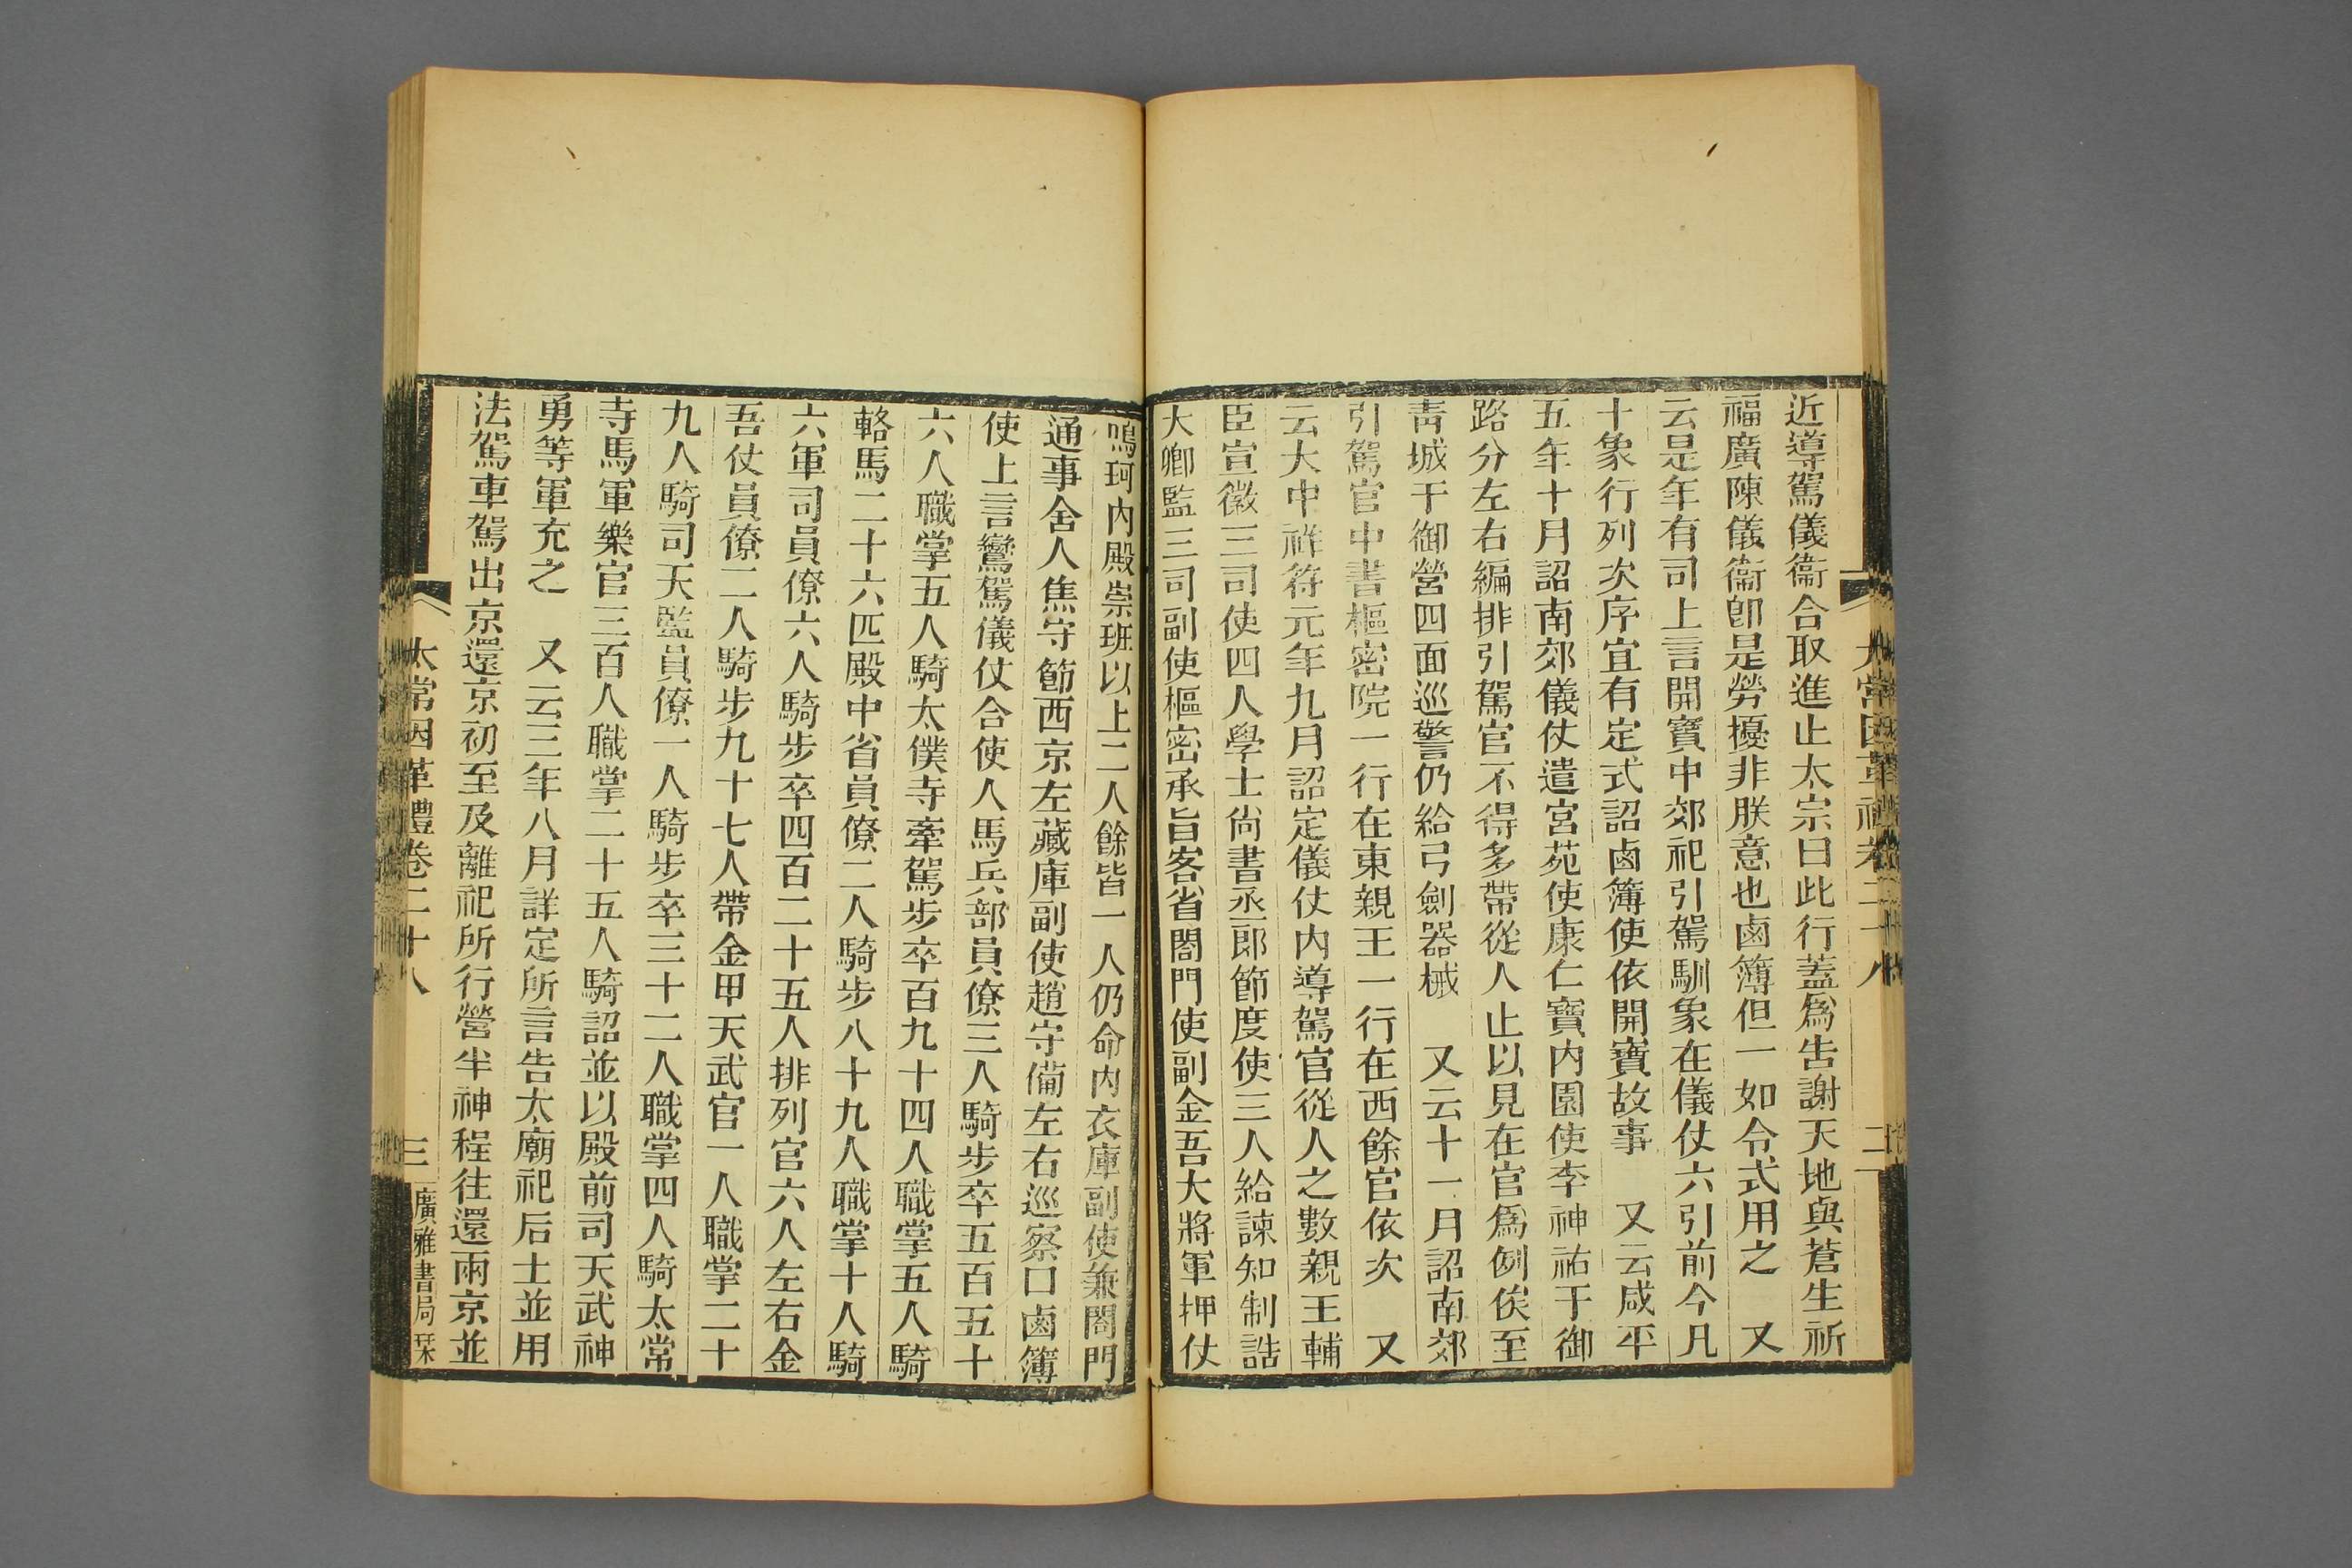 太常因革禮卷二十八
二
近導駕儀衞合取進止太宗曰此行蓋爲告謝天地與蒼生祈
福廣陳儀衞卽是勞擾非朕意也鹵簿但一如令式用之　又
云是年有司上言開寶中郊祀引駕馴象在儀仗六引前今凡
十象行列次序宜有定式詔鹵簿使依開寶故事　又云咸平
五年十月詔南郊儀仗遣宮苑使康仁寶內園使李神祐于御
路分左右編排引駕官不得多帶從人止以見在官爲例俟至
靑城于御營四面巡警仍給弓劍器械　又云十一月詔南郊
引駕官中書樞密院一行在東親王一行在西餘官依次　又
云大中祥符元年九月詔定儀仗內導駕官從人之數親王輔
臣宣徽三司使四人學士尙書丞郎節度使三人給諫知制誥
大卿監三司副使樞密承旨客省閤門使副金吾大將軍押仗
鳴珂內殿崇班以上二人餘皆一人仍命內衣庫副使兼閤門
通事舍人焦守節西京左藏庫副使趙守倫左右巡察口鹵簿
使上言鸞駕儀仗合使人馬兵部員僚三人騎步卒五百五十
六人職掌五人騎太僕寺牽駕步卒百九十四人職掌五人騎
輅馬二十六匹殿中省員僚二人騎步八十九人職掌十人騎
六軍司員僚六人騎步卒四百二十五人排列官六人左右金
吾仗員僚二人騎步九十七人帶金甲天武官一人職掌二十
九人騎司天監員僚一人騎步卒三十二人職掌四人騎太常
寺馬軍樂官三百人職掌二十五人騎詔並以殿前司天武神
勇等軍充之　又云三年八月詳定所言告太廟祀后土並用
法駕車駕出京還京初至及離祀所行營半神程往還兩京並
太常因革禮卷二十八
三
廣雅書局栞